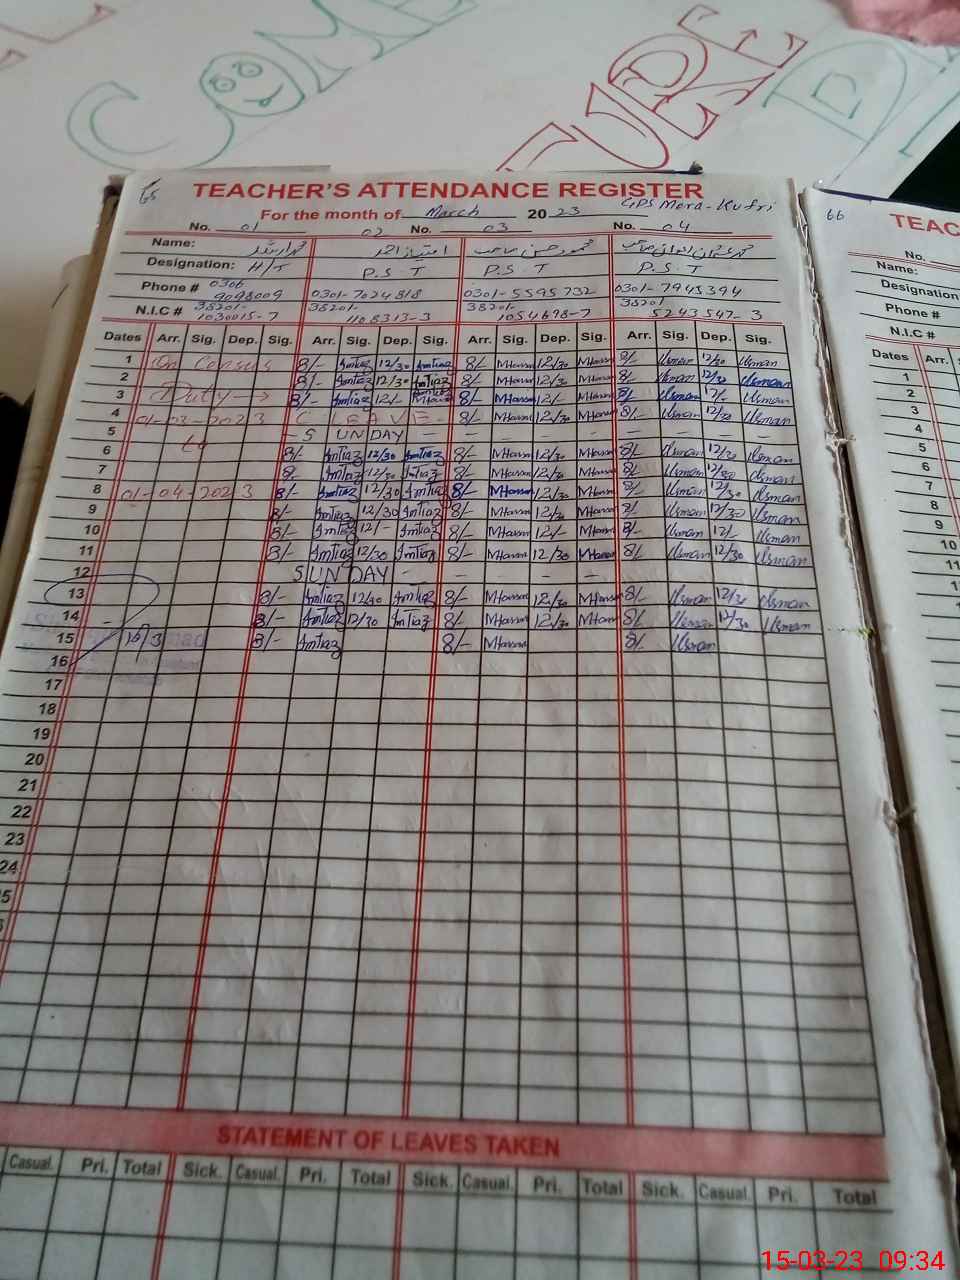 COME
FUTURE
65
TEACHER'S ATTENDANCE REGISTER
For the month of March 2023 GPS Mera-Kufri
No. 01 02 No. 03 No. 04
Name: امتیاز احمد
Designation: H/T P.S.T P.S.T P.S.T
Phone # 0306 9098009 0301-7024818 0301-5595732 0301-7945394
N.I.C # 38201-1030015-7 38201 1108313-3 38201- 1054698-7 38201 5243547-3
Dates Arr. Sig. Dep. Sig. Arr. Sig. Dep. Sig. Arr. Sig. Dep. Sig. Arr. Sig. Dep. Sig.
1 On Census 8/- Imtiaz 12/30 Imtiaz 8/- MHassan 12/30 MHassan 8/- Usman 12/30 Usman
2 8/- Imtiaz 12/30 Imtiaz 8/- MHassan 12/30 MHassan 8/- Usman 12/30 Usman
3 Duty → 8/- Imtiaz 12/- 8/- MHassan 12/- MHassan 8/- Usman 12/- Usman
4 01-03-2023 C LEAVE 8/- MHassan 12/30 MHassan 8/- Usman 12/30 Usman
5 to - SUNDAY - - - - - - - -
6 8/- Imtiaz 12/30 Imtiaz 8/- MHassan 12/30 MHassan 8/- Usman 12/30 Usman
7 8/- Imtiaz 12/30 Imtiaz 8/- MHassan 12/30 MHassan 8/- Usman 12/30 Usman
8 01-04-2023 8/- Imtiaz 12/30 Imtiaz 8/- MHassan 12/30 MHassan 8/- Usman 12/30 Usman
9 8/- Imtiaz 12/30 Imtiaz 8/- MHassan 12/30 MHassan 8/- Usman 12/30 Usman
10 8/- Imtiaz 12/- Imtiaz 8/- MHassan 12/- MHassan 8/- Usman 12/- Usman
11 8/- Imtiaz 12/30 Imtiaz 8/- MHassan 12/30 MHassan 8/- Usman 12/30 Usman
12 SUNDAY - - - - -
13 8/- Imtiaz 12/30 Imtiaz 8/- MHassan 12/30 MHassan 8/- Usman 12/30 Usman
14 8/- Imtiaz 12/30 Imtiaz 8/- MHassan 12/30 MHassan 8/- Usman 12/30 Usman
15 8/- Imtiaz 8/- MHassan 8/- Usman
16
17
18
19
20
21
22
23
24
STATEMENT OF LEAVES TAKEN
Casual. Pri. Total Sick. Casual. Pri. Total Sick. Casual. Pri. Total Sick. Casual. Pri. Total
66
TEAC
No.
Name:
Designation
Phone #
N.I.C #
Dates Arr.
1
2
3
4
5
6
7
8
9
10
11
12
13
14
15
15-03-23 09:34